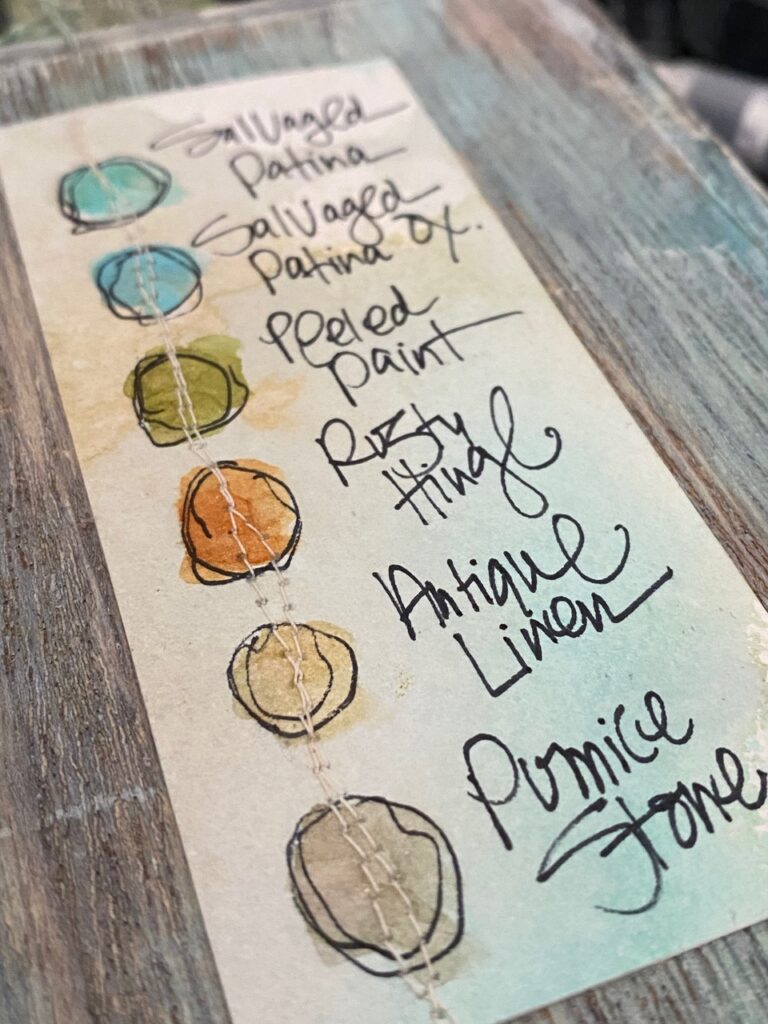 Salvaged
Patina
Salvaged
Patina Ox.
Peeled
Paint
Rusty
Hinge
Antique
Linen
Pumice
Stone